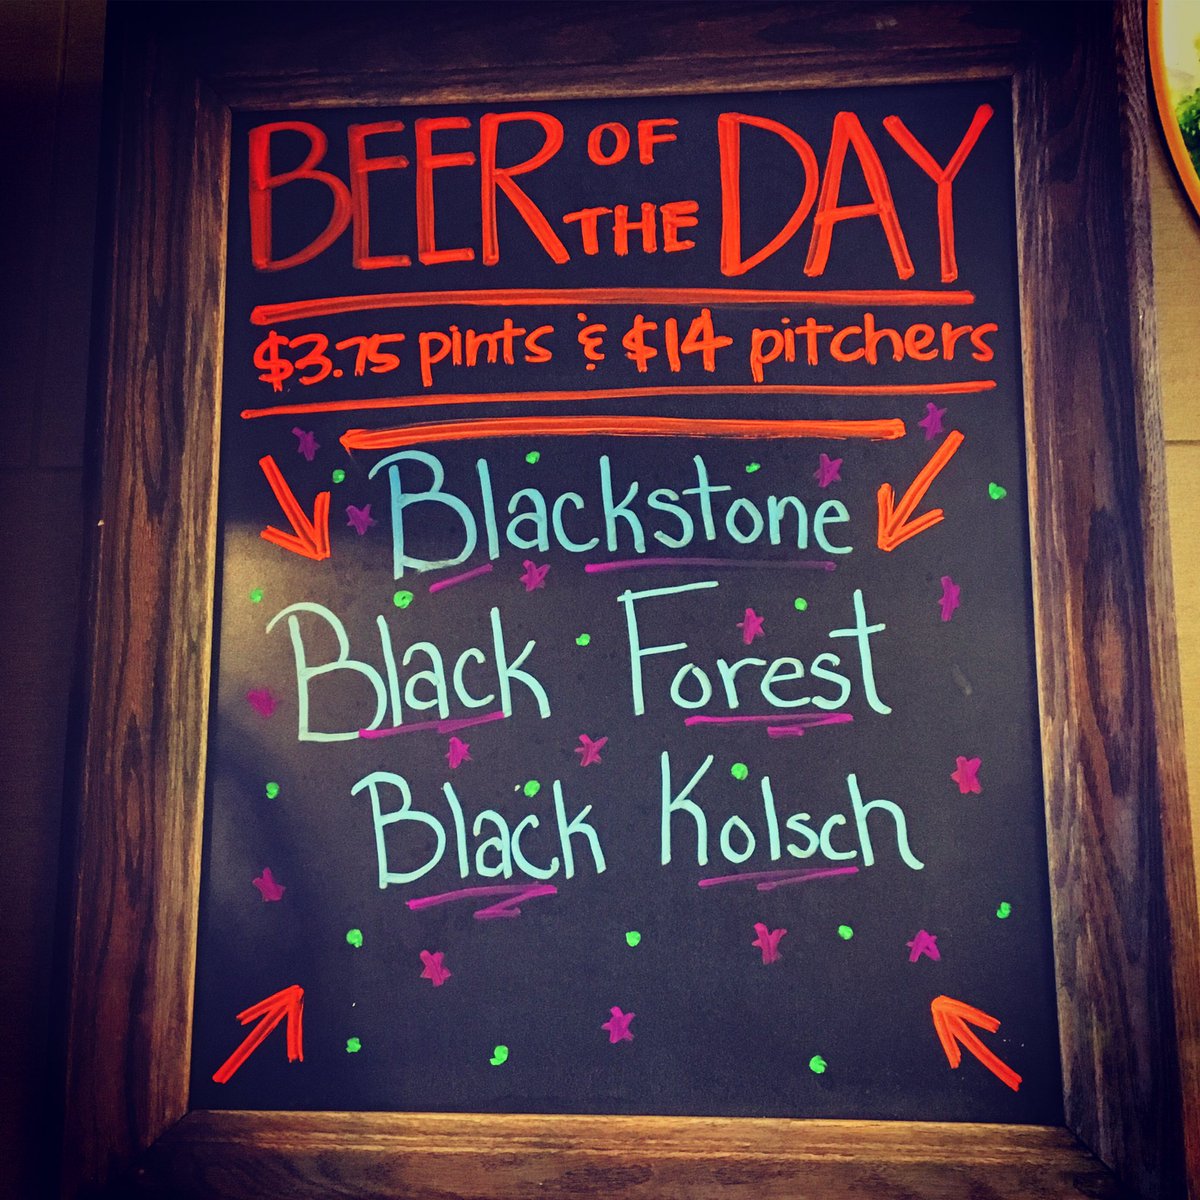 BEER OF THE DAY
$3.75 pints & $14 pitchers
Blackstone
Black Forest
Black Kolsch